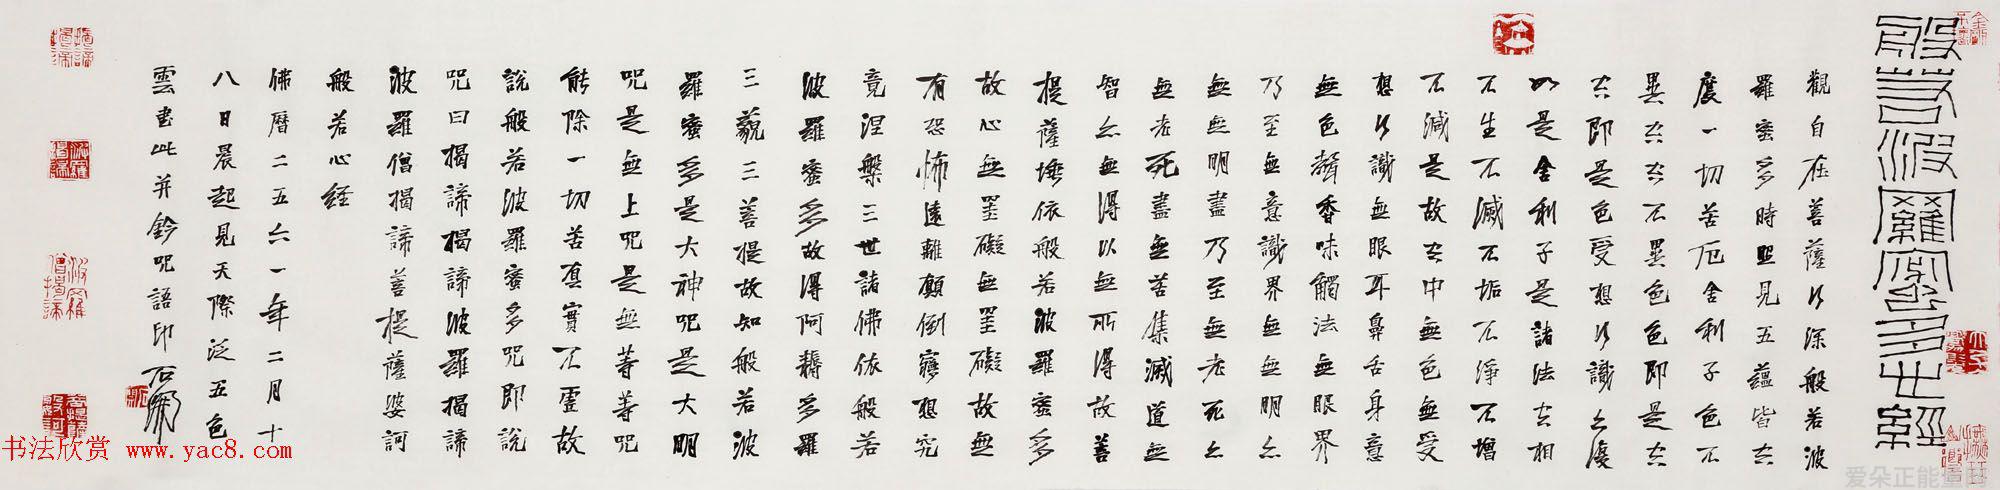 般若波羅蜜多心經
觀自在菩薩行深般若波
羅蜜多時照見五蘊皆空
度一切苦厄舍利子色不
異空空不異色色即是空
空即是色受想行識亦復
如是舍利子是諸法空相
不生不滅不垢不淨不增
不減是故空中無色無受
想行識無眼耳鼻舌身意
無色聲香味觸法無眼界
乃至無意識界無無明亦
無無明盡乃至無老死亦
無老死盡無苦集滅道無
智亦無得以無所得故菩
提薩埵依般若波羅蜜多
故心無罣礙無罣礙故無
有恐怖遠離顛倒夢想究
竟涅槃三世諸佛依般若
波羅蜜多故得阿耨多羅
三藐三菩提故知般若波
羅蜜多是大神咒是大明
咒是無上咒是無等等咒
能除一切苦真實不虛故
說般若波羅蜜多咒即說
咒曰揭諦揭諦波羅揭諦
波羅僧揭諦菩提薩婆訶
般若心经
佛曆二五六一年二月十
八日晨起見天際泛五色
雲書此并鈐咒語印 石開
揭諦揭諦
波羅揭諦
波羅僧揭諦
菩提薩婆訶
书法欣赏 www.yac8.com
爱朵正能量网